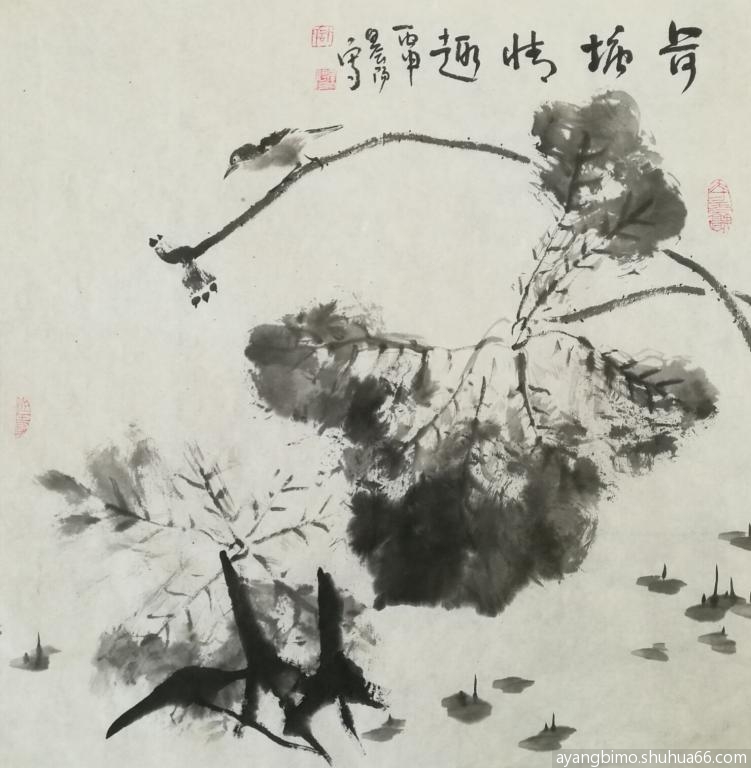 荷塘情趣
丙申
晨陽
寫
ayangbimo.shuhua66.com